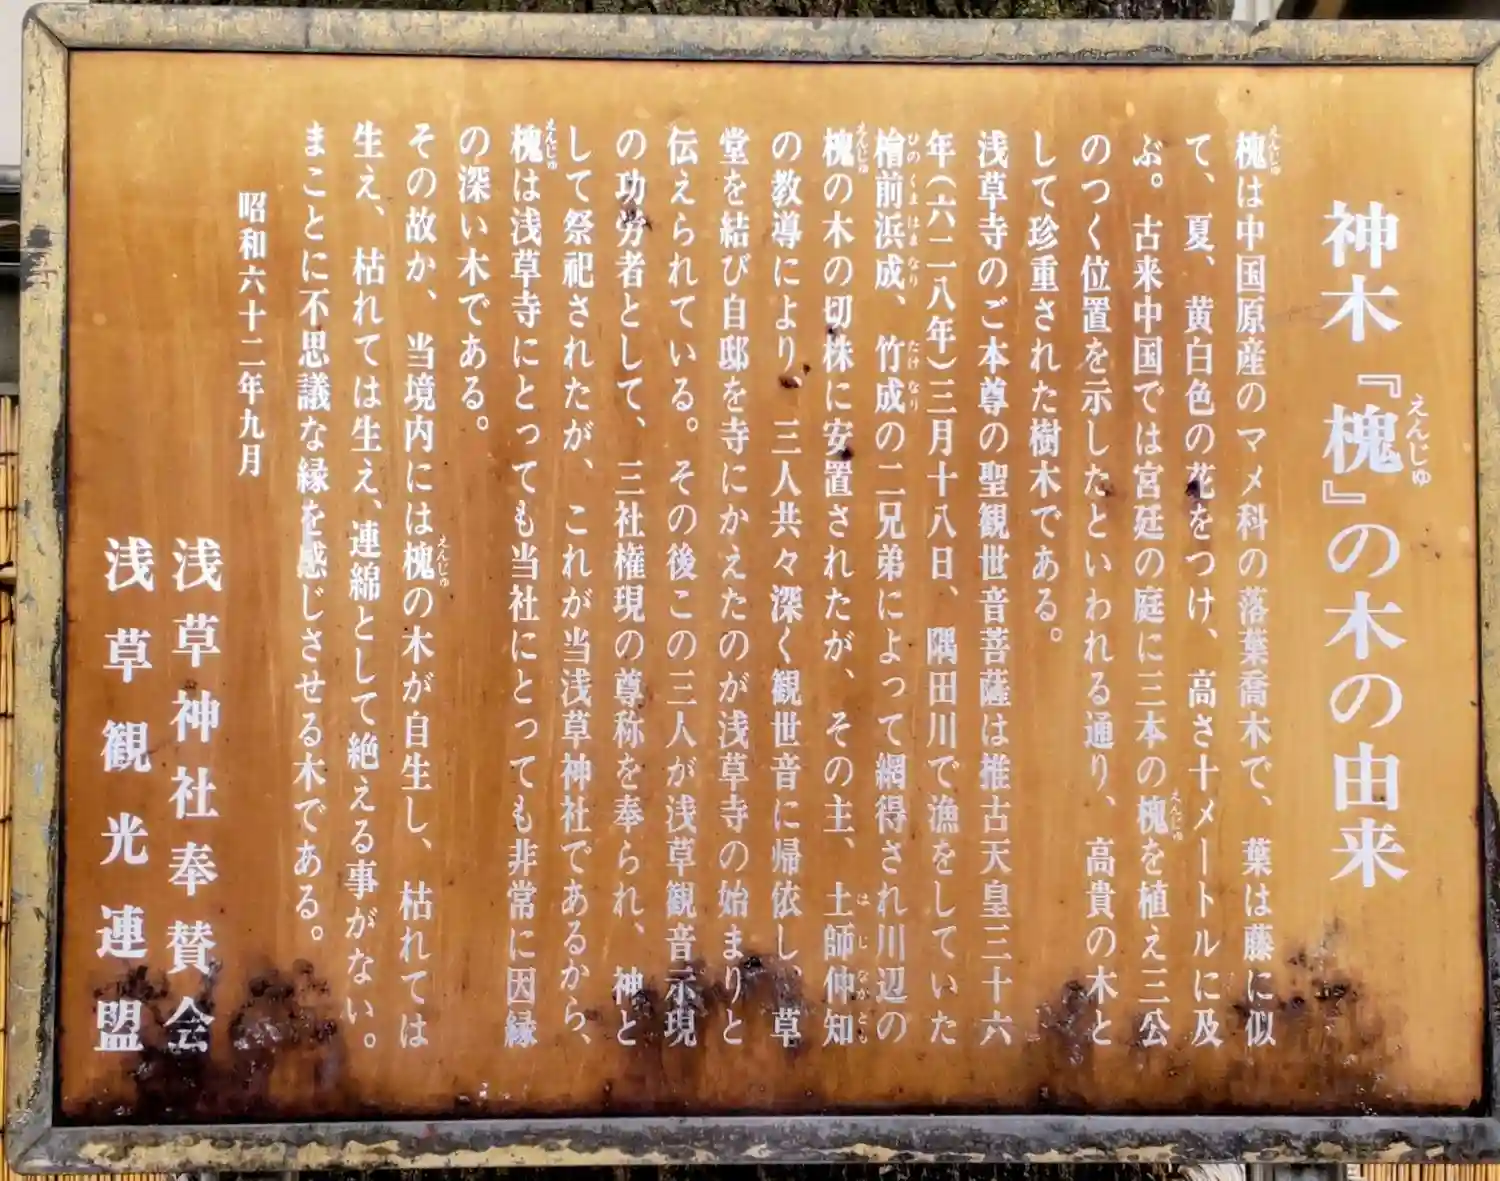 神木『槐』の木の由来
槐は中国原産のマメ科の落葉喬木で、葉は藤に似
て、夏、黄白色の花をつけ、高さ十メートルに及
ぶ。古来中国では宮廷の庭に三本の槐を植え三公
のつく位置を示したといわれる通り、高貴の木と
して珍重された樹木である。
浅草寺のご本尊の聖観世音菩薩は推古天皇三十六
年(六二八年)三月十八日、隅田川で漁をしていた
檜前浜成、竹成の二兄弟によって網得され川辺の
槐の木の切株に安置されたが、その主、土師仲知
の教導により、三人共々深く観世音に帰依し、草
堂を結び自邸を寺にかえたのが浅草寺の始まりと
伝えられている。その後この三人が浅草観音示現
の功労者として、三社権現の尊称を奉られ、神と
して祭祀されたが、これが当浅草神社であるから、
槐は浅草寺にとっても当社にとっても非常に因縁
の深い木である。
その故か、当境内には槐の木が自生し、枯れては
生え、枯れては生え、連綿として絶える事がない。
まことに不思議な縁を感じさせる木である。
昭和六十二年九月
浅草神社奉賛会
浅草観光連盟